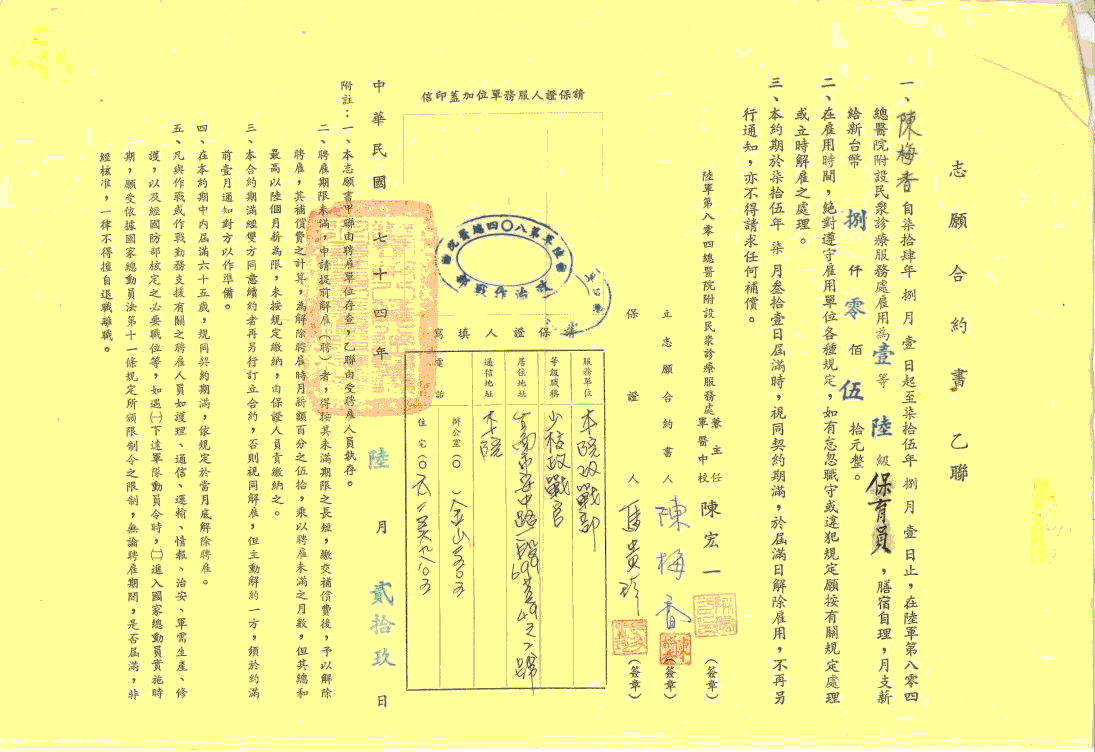 志願合約書 乙聯
一、陳梅香自柒拾肆年 捌 月 壹 日起至柒拾伍年 捌 月 壹 日止，在陸軍第八零四
總醫院附設民衆診療服務處雇用為 壹 等 陸 級 保育員，膳宿自理，月支薪
給新台幣 捌 仟 零 佰 伍 拾元整。
二、在雇用時間，絕對遵守雇用單位各種規定，如有怠忽職守或違犯規定願按有關規定處理
或立時解雇之處理。
三、本約期於柒拾伍年 柒 月叁拾壹日屆滿時，視同契約期滿，於屆滿日解除雇用，不再另
行通知，亦不得請求任何補償。
陸軍第八零四總醫院附設民衆診療服務處兼主任
軍醫中校 陳宏一 （簽章）
立志願合約書人 陳梅香 （簽章）
保證人 貴 （簽章）
保證人填寫
服務單位 本院政戰部
等級職稱 少校政戰官
居住地址
通信地址 本院
電話 辦公室（〇 ）
住宅（〇
請保證人服務單位加蓋印信
陸軍第八〇四總醫院
政治作戰部
中華民國七十四年 陸 月 貳拾玖 日
附註：一、本志願書甲聯由聘雇單位存查，乙聯由受聘雇人員執存。
二、聘雇期限未滿，申請提前解雇（聘）者，得按其未滿期限之長短，繳交補償費後，予以解除
聘雇，其補償費之計算，為解除聘雇時月薪額百分之伍拾，乘以聘雇未滿之月數，但其總和
最高以陸個月薪為限，未按規定繳納，由保證人員責繳納之。
三、本合約期滿經雙方同意續約者再另行訂立合約，否則視同解雇，但主動解約一方，須於約滿
前壹月通知對方以作準備。
四、在本約期中內屆滿六十五歲，規同契約期滿，依規定於當月底解除聘雇。
五、凡與作戰或作戰勤務支援有關之聘雇人員如護理、通信、運輸、情報、治安、軍需生產、修
護，以及經國防部核定之必要職位等，如遇㈠下達軍隊動員令時，㈡進入國家總動員實施時
期，願受依據國家總動員法第十一條規定所頒限制令之限制，無論聘雇期間，是否屆滿，非
經核准，一律不得擅自退職離職。